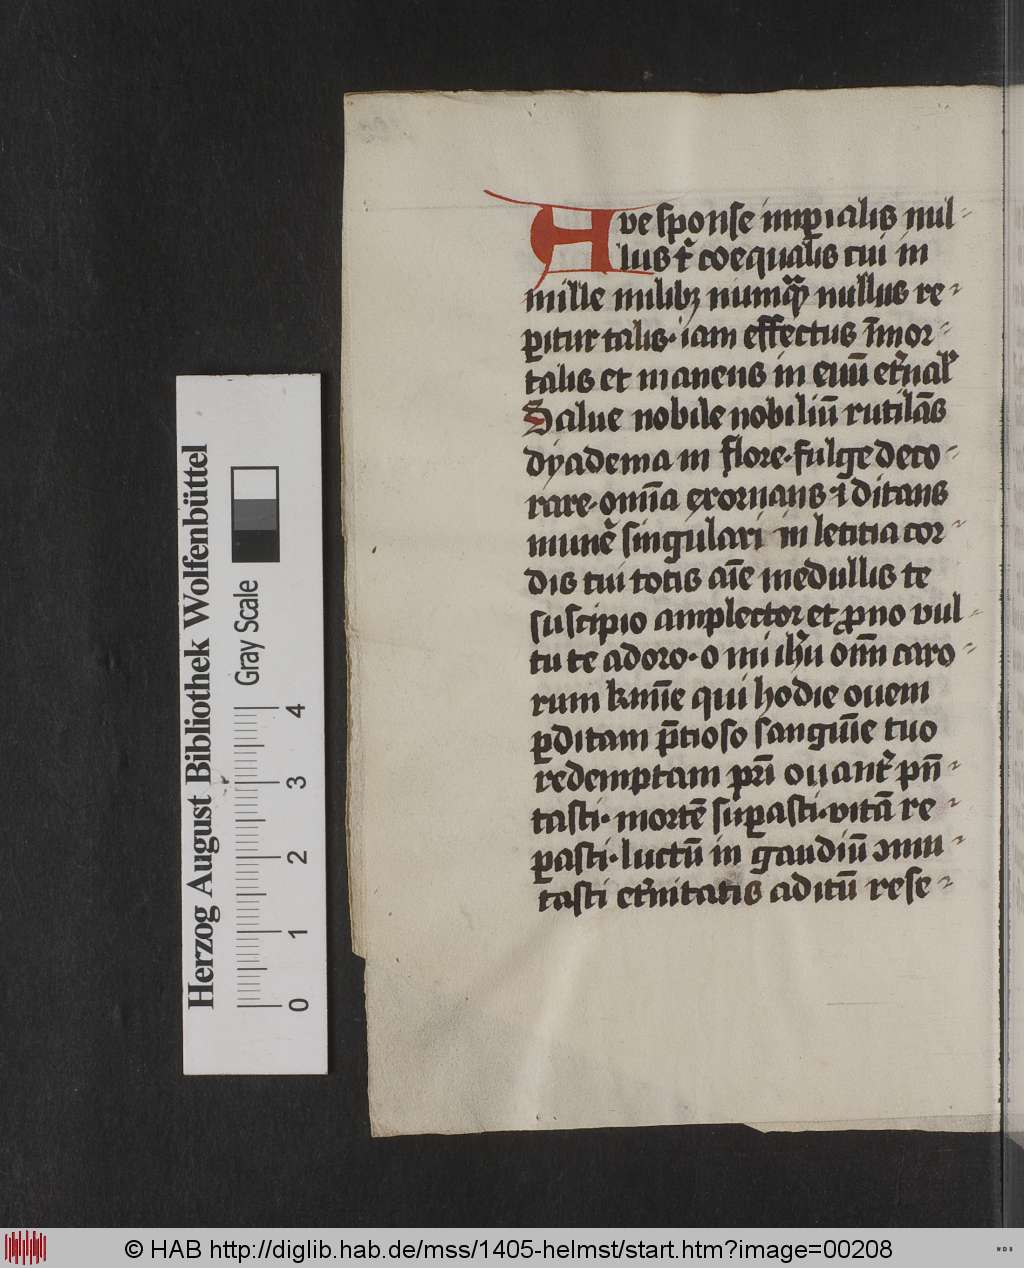 Ave sponse imꝑialis nul-
lus t͛ coequalis cui in
mille milibꝫ numqͣꝫ nullus re-
ꝑitur talis· iam effectus īmor-
talis et manens in euū et͛nal͛
Salue nobile nobiliū rutilās
dyadema in flore· fulge deco-
rare· om̄ia exornans ⁊ ditans
mun͛e singulari in letitia cor-
dis tui totis aīe medullis te
suscipio amplector et ꝓno vul-
tu te adoro· o mi ih̄u om̄ caro-
rum kr̄nie qui hodie ouem
ꝑditam p̄tioso sangui͛e tuo
redemptam pr̄i ouant͛ pn̄-
tasti· mortē suꝑasti· vitā re-
ꝑasti· luctū in gaudiū ꝯmu-
tasti et͛nitatis aditū rese-
Herzog August Bibliothek Wolfenbüttel
Gray Scale
0 1 2 3 4
© HAB http://diglib.hab.de/mss/1405-helmst/start.htm?image=00208